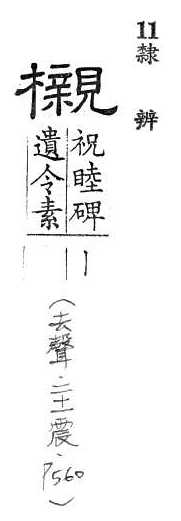 11隸辨
櫬
祝睦碑丨
遺令素
（去聲．二十一震．P560）